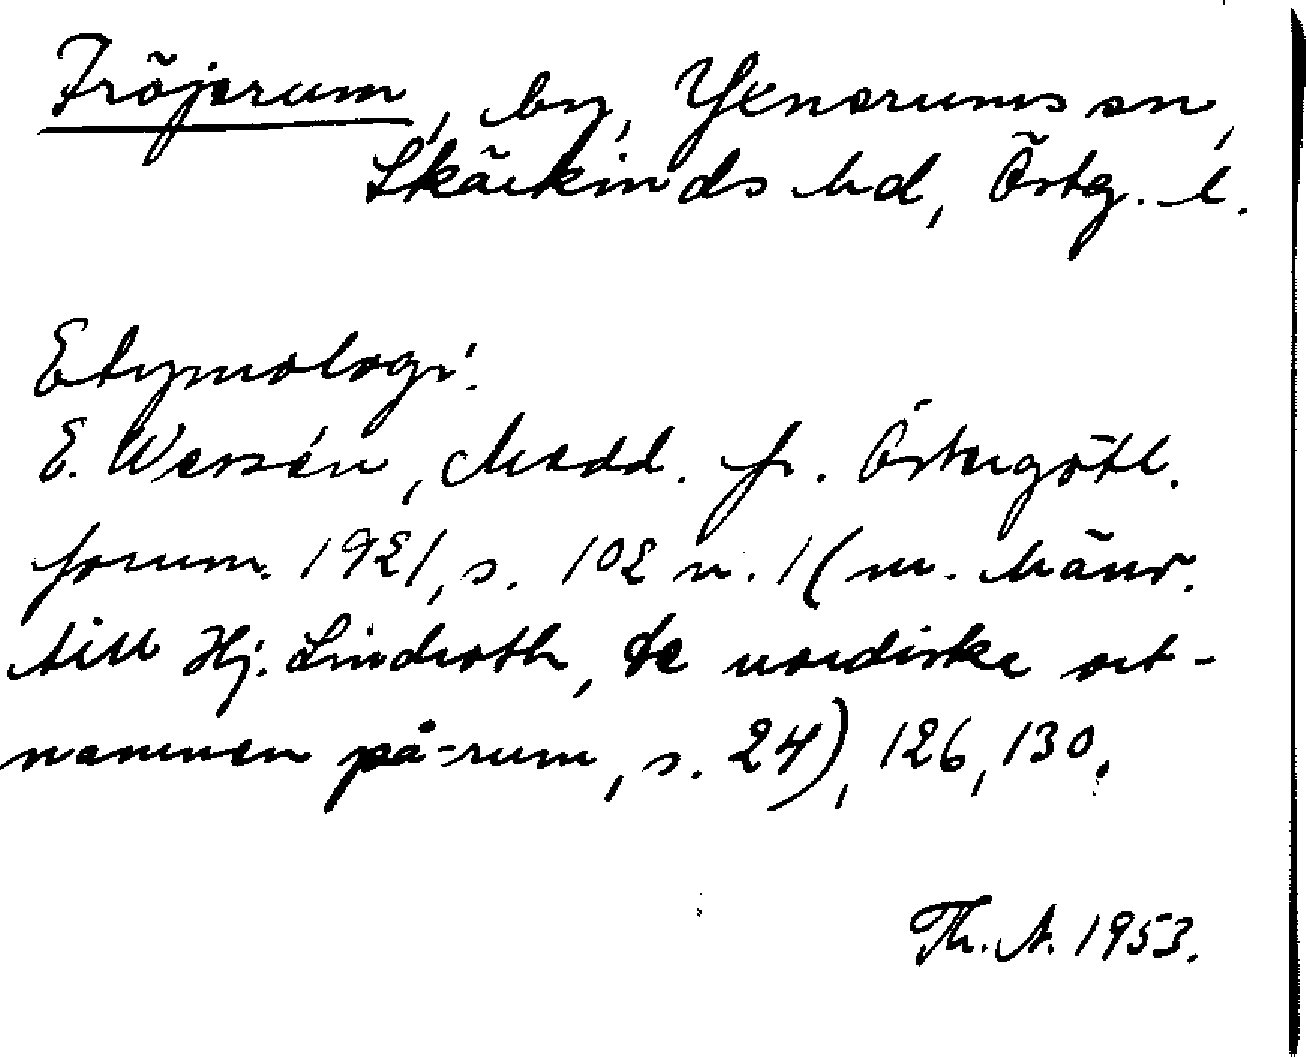 Fröjerum, by, Yxnerums sn,
Skärkinds hd, Östg. l.
Etymologi:
E. Wessén, Medd. fr. Östergötl.
fornm. 1921, s. 102 n. 1 (m. hänv.
till Hj. Lindroth, De nordiske ort-
namnen på -rum, s. 24), 126, 130.
Th. A. 1953.